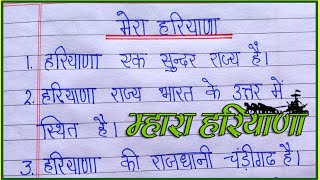 मेरा हरियाणा
1. हरियाणा एक सुन्दर राज्य है।
2. हरियाणा राज्य भारत के उत्तर में
स्थित है।
म्हारा हरियाणा
3. हरियाणा की राजधानी चंड़ीगढ है।